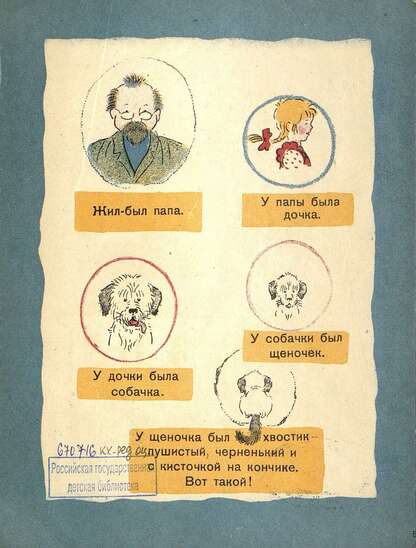 Жил-был папа.
У папы была
дочка.
У дочки была
собачка.
У собачки был
щеночек.
У щеночка был хвостик
пушистый, черненький и
с кисточкой на кончике.
Вот такой!
670716
Российская государственная
детская библиотека